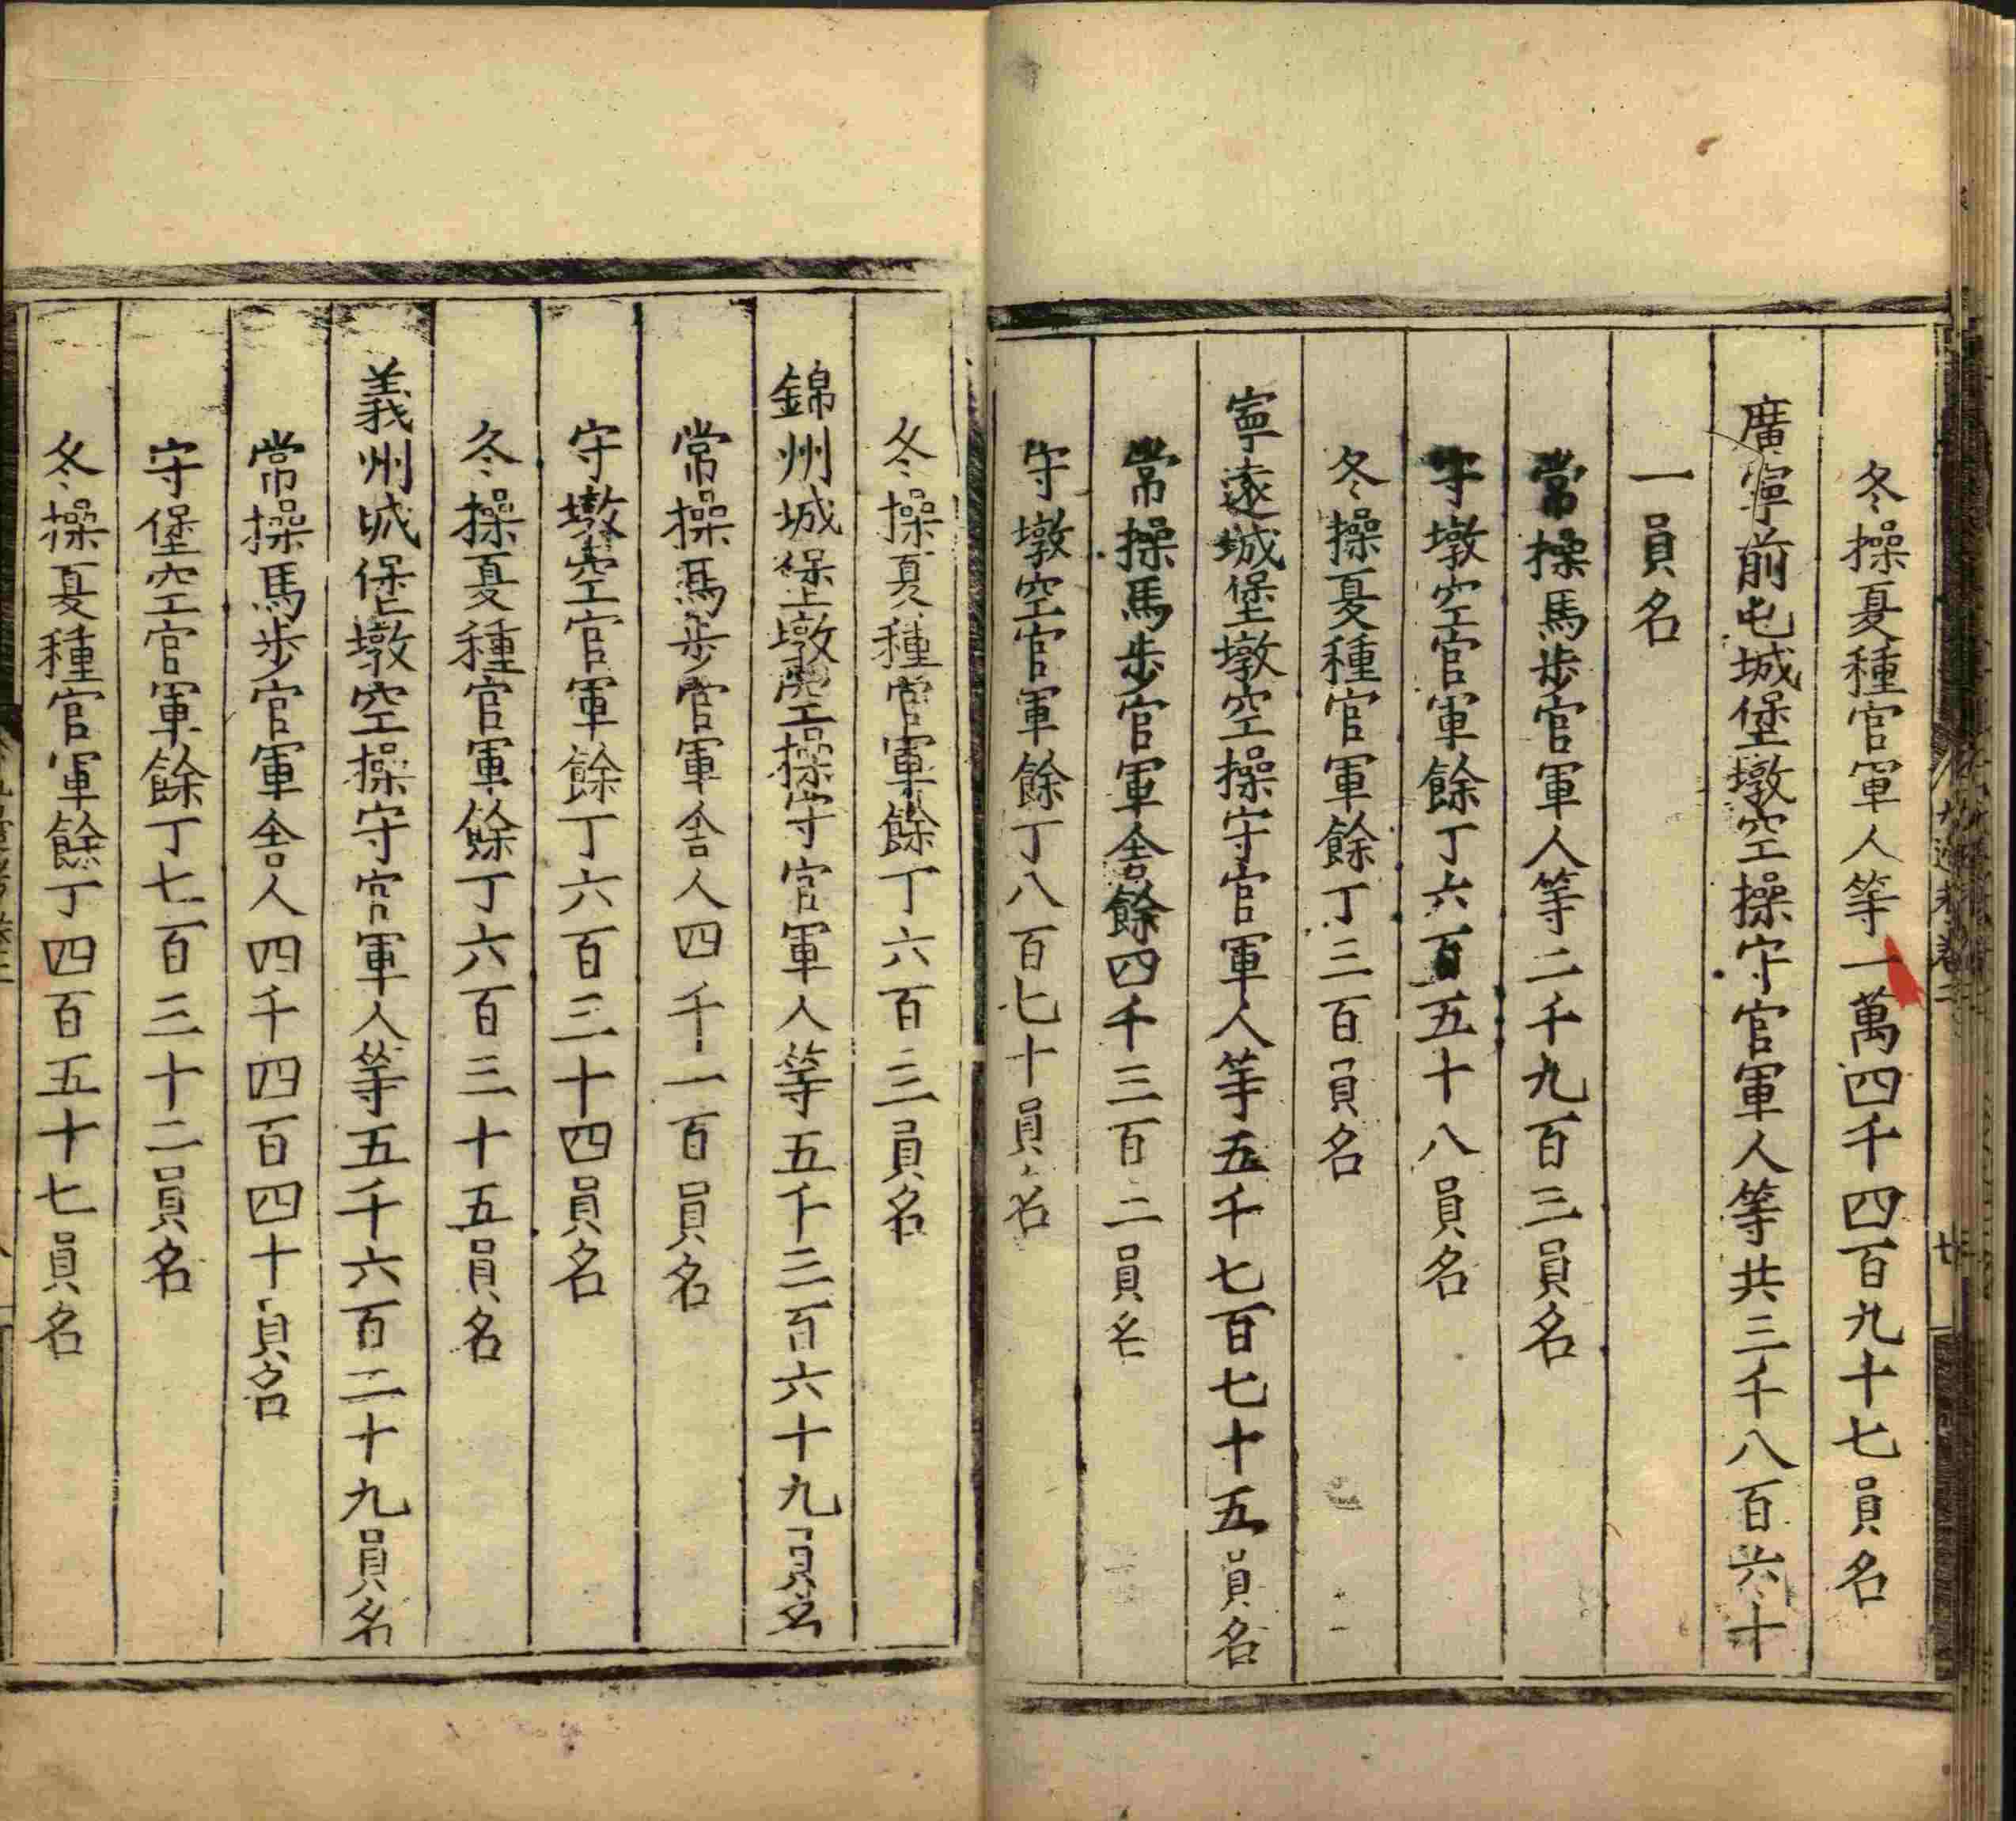 冬操夏種官軍人等一萬四千四百九十七員名
廣寧前屯城堡墩空操守官軍人等共三千八百六十
一員名
常操馬步官軍人等二千九百三員名
守墩空官軍餘丁六百五十八員名
冬操夏種官軍餘丁三百員名
寧遠城堡墩空操守官軍人等五千七百七十五員名
常操馬步官軍舍餘四千三百二員名
守墩空官軍餘丁八百七十員名
冬操夏種官軍餘丁六百三員名
錦州城堡墩空操守官軍人等五千三百六十九員名
常操馬步官軍舍人四千一百員名
守墩空官軍餘丁六百三十四員名
冬操夏種官軍餘丁六百三十五員名
義州城堡墩空操守官軍人等五千六百二十九員名
常操馬步官軍舍人四千四百四十員名
守堡空官軍餘丁七百三十二員名
冬操夏種官軍餘丁四百五十七員名